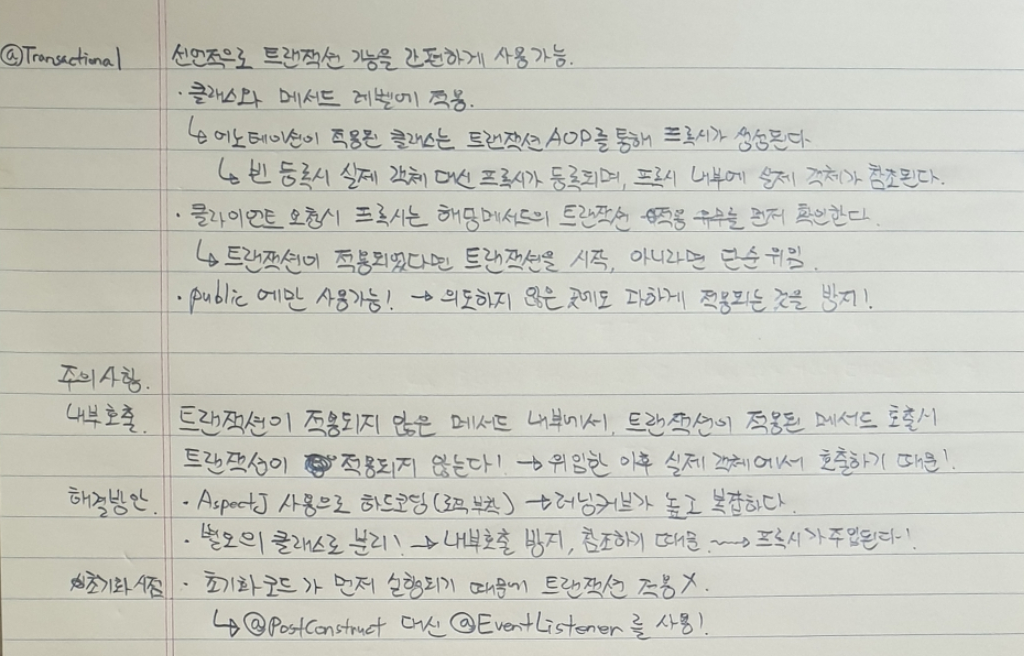 @Transactional 선언적으로 트랜잭션 기능을 간편하게 사용가능.
· 클래스와 메서드 레벨에 적용.
↳ 어노테이션이 적용된 클래스는 트랜잭션 AOP를 통해 프록시가 생성된다.
↳ 빈 등록시 실제 객체 대신 프록시가 등록되며, 프록시 내부에 실제 객체가 참조된다.
· 클라이언트 요청시 프록시는 해당메서드의 트랜잭션 적용 유무를 먼저 확인한다.
↳ 트랜잭션이 적용되었다면 트랜잭션을 시작, 아니라면 단순 위임.
· public 에만 사용가능! → 의도하지 않은 곳에도 과하게 적용되는 것을 방지!
주의사항.
내부호출. 트랜잭션이 적용되지 않은 메서드 내부에서, 트랜잭션이 적용된 메서드 호출시
트랜잭션이 적용되지 않는다! → 위임한 이후 실제 객체에서 호출하기 때문!
해결방안. · AspectJ 사용으로 하드코딩 → 러닝커브가 높고 복잡하다.
· 별도의 클래스로 분리! → 내부호출 방지, 참조하기 때문. ⇝ 프록시가 주입된다!
초기화 시점 · 초기화 코드가 먼저 실행되기 때문에 트랜잭션 적용 X.
↳ @PostConstruct 대신 @EventListener 를 사용!